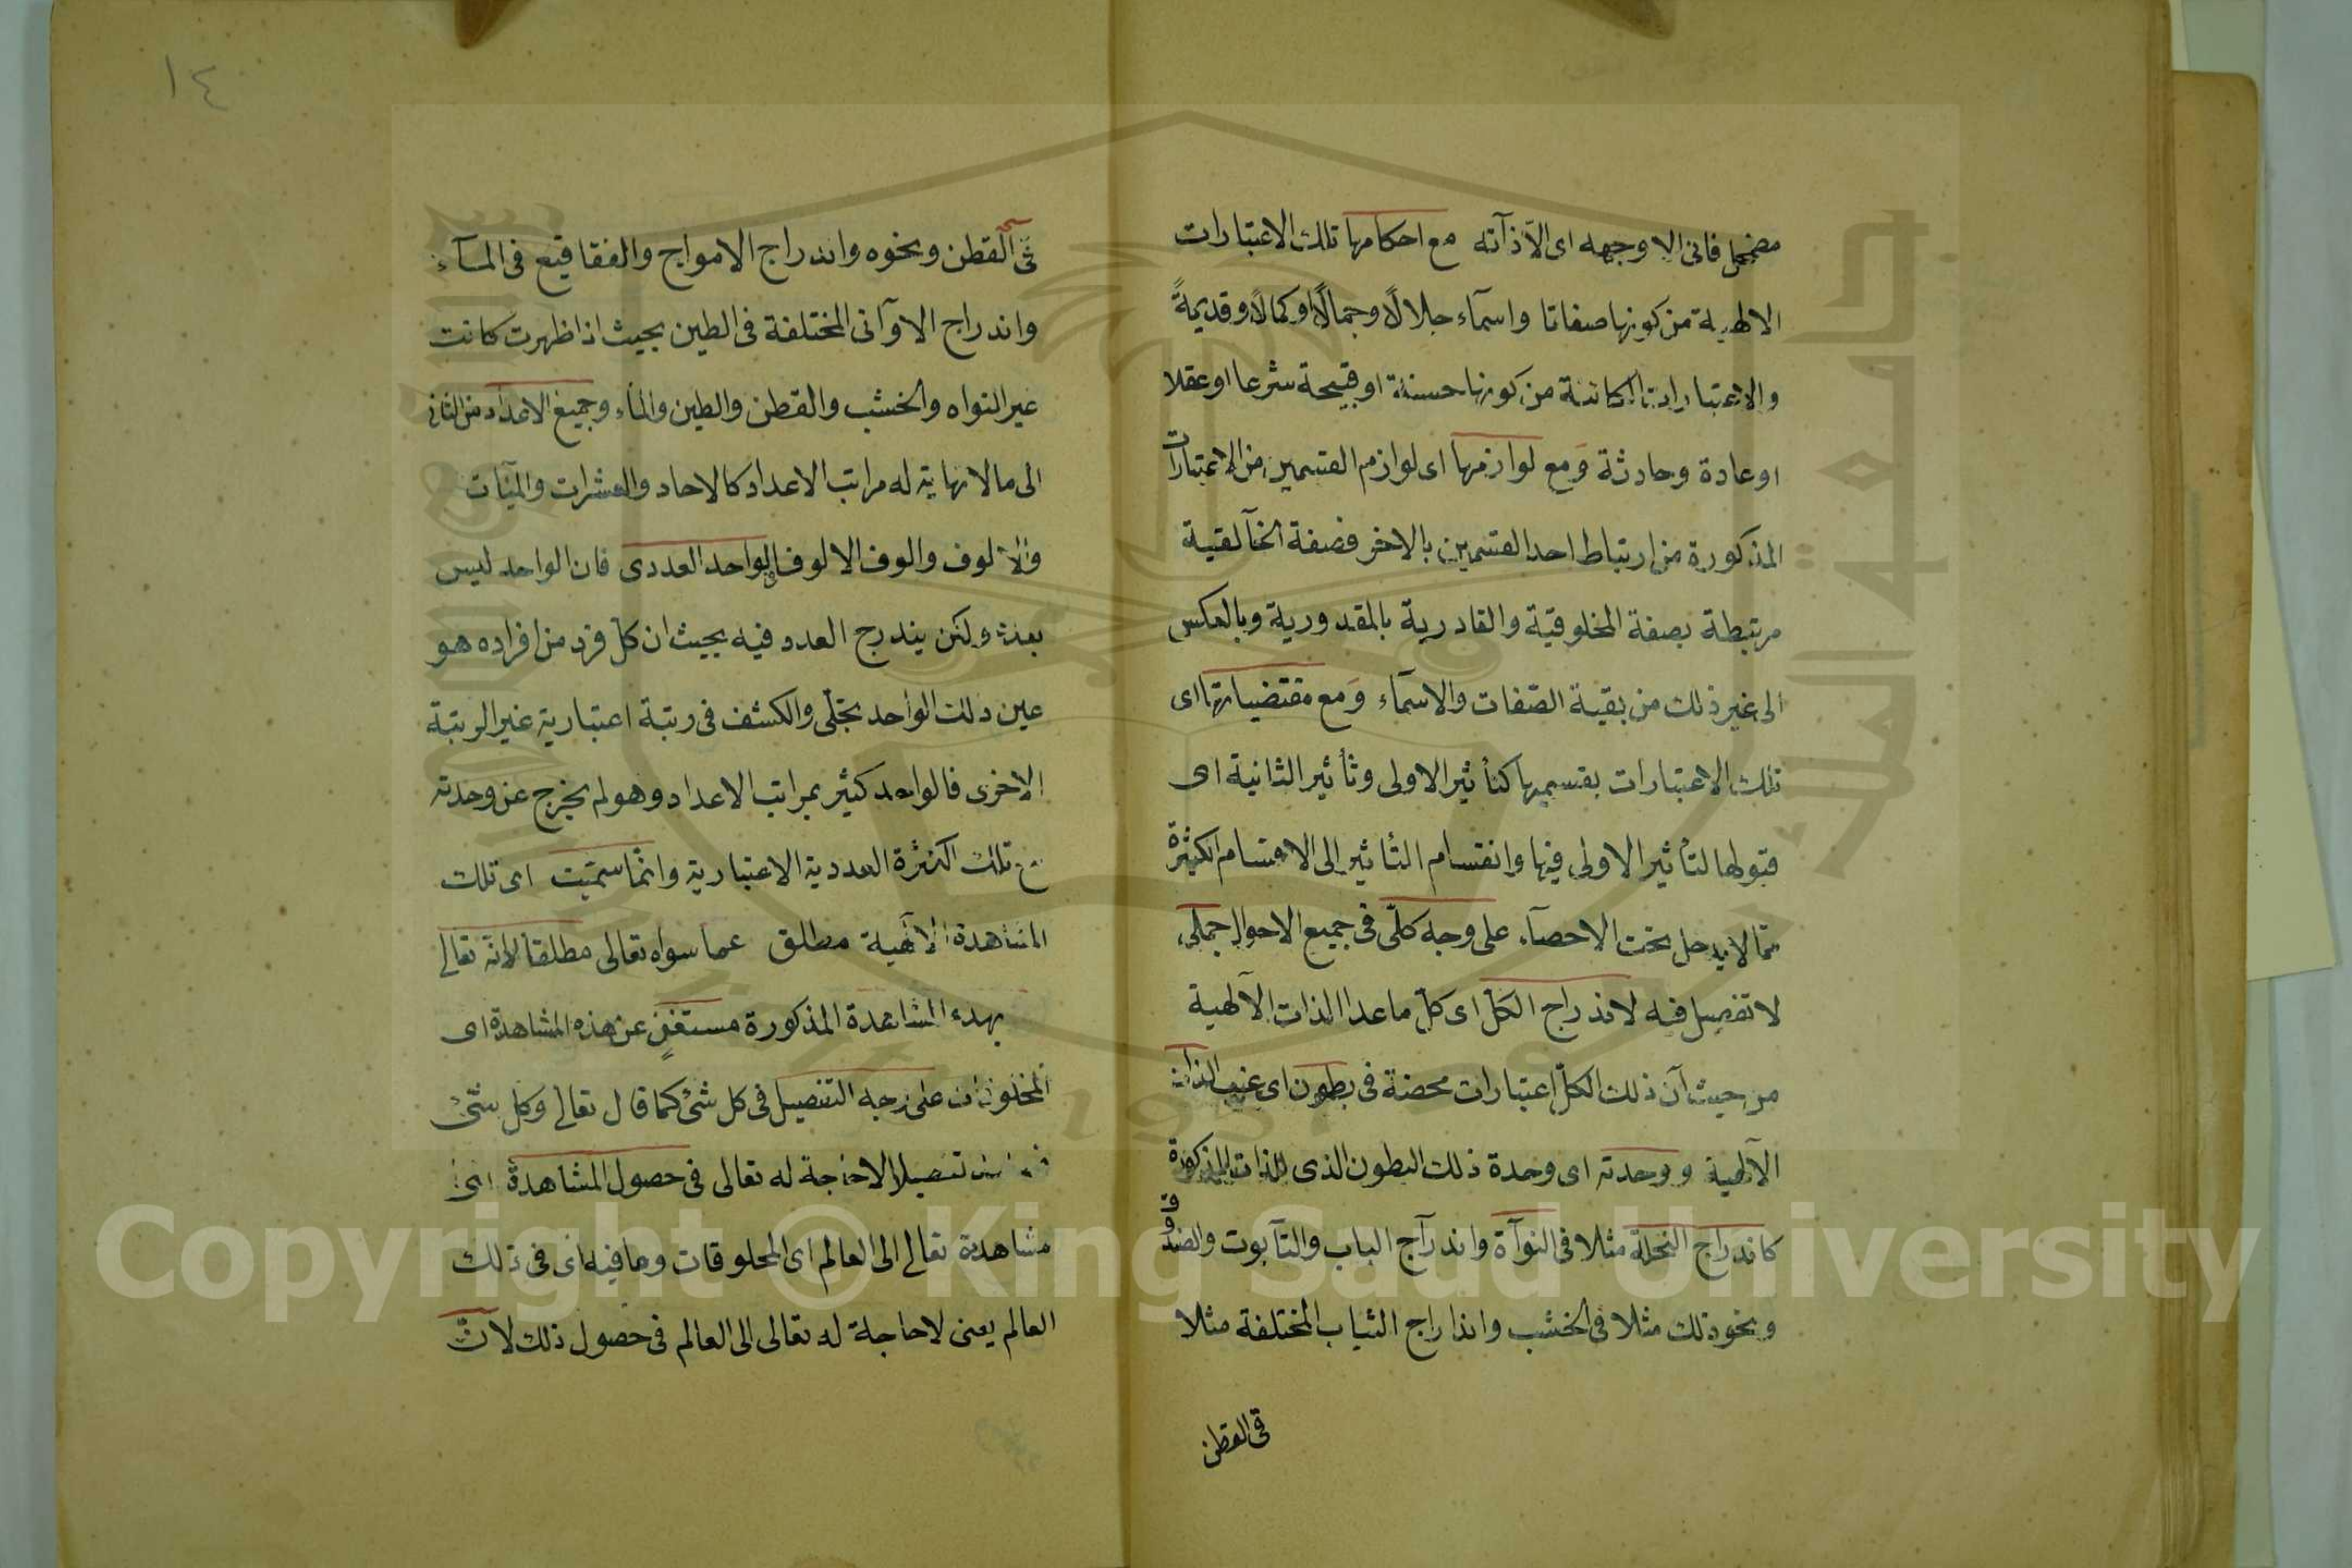 مضمحل فانى الا وجهه اى الّا ذآته مع احكامها تلك الاعتبارات
الالهية من كونها صفاتا واسمآء جلالًا وجمالًا وكمالًا وقديمةً
والاعتبارات الكائنة من كونها حسنة او قبيحة شرعا او عقلا
او عادة وحادثة وَمع لوازمها اى لوازم القسمين من الاعتبارات
المذكورة من ارتباط احد القسمين بالاخر فصفة الخآلقية
مرتبطة بصفة المخلوقيّة والقادرية بالمقدورية وبالعكس
الى غير ذلك من بقية الصّفات والاسمآء وَمع مقتضياتها اى
تلك الاعتبارات بقسميها كتأثير الاولى وتأثير الثانية اى
قبولها لتأثير الاولى فيها وانقسام التاثير الى الاقسام الكثيرة
ممّا لا يدخل تحت الاحصآء على وجه كلّى فى جميع الاحوال جملى
لا تفصيل فيه لاندراج الكلّ اى كلّ ما عدا الذات الآلهية
من حيث آن ذلك الكلّ اعتبارات محضة فى بطون اى غيب الذات
الآلهية ووحدته اى وحدة ذلك البطون الذى للذات المذكورة
كاندراج النخلة مثلا فى النوآة واندرآج الباب والتآبوت والصندوق
ونحو ذلك مثلا فى الخشب وانداراج الثياب المختلفة مثلا
فى القطن
١٤
فى القطن ونحوه واندراج الامواج والفقاقيع فى المآء
واندراج الاوآنى المختلفة فى الطين بحيث اذا ظهرت كانت
غير النواه والخشب والقطن والطين والماء وجميع الاعداد من الثانى
الى ما لا نهاية له مراتب الاعداد كالاحاد والعشرات والمئات
والالوف والوف الالوف فى الواحد العددى فان الواحد ليس
بعدد ولكن يندرج العدد فيه بحيث ان كلّ فرد من افراده هو
عين ذلك الواحد تجلّى وانكشف فى رتبة اعتبارية غير الرتبة
الاخرى فالواحد كثير بمراتب الاعداد وهو لم يخرج عن وحدته
مع تلك الكثرة العددية الاعتبارية وانّما سمّيت اى تلك
المشاهدة الآلهية مطلق عما سواه تعالى مطلقا لانّه تعالى
بهذه المشاهدة المذكورة مستغنٍ عن هذه المشاهدة اى
المخلوقات على وجه التفصيل فى كل شئ كما قال تعالى وكل شئ
تفصيلا لا حاجة له تعالى فى حصول المشاهدة اى
مشاهدته تعالى الى العالم اى المخلوقات وما فيه اى فى ذلك
العالم يعنى لا حاجة له تعالى الى العالم فى حصول ذلك لانّ
Copyright © King Saud University